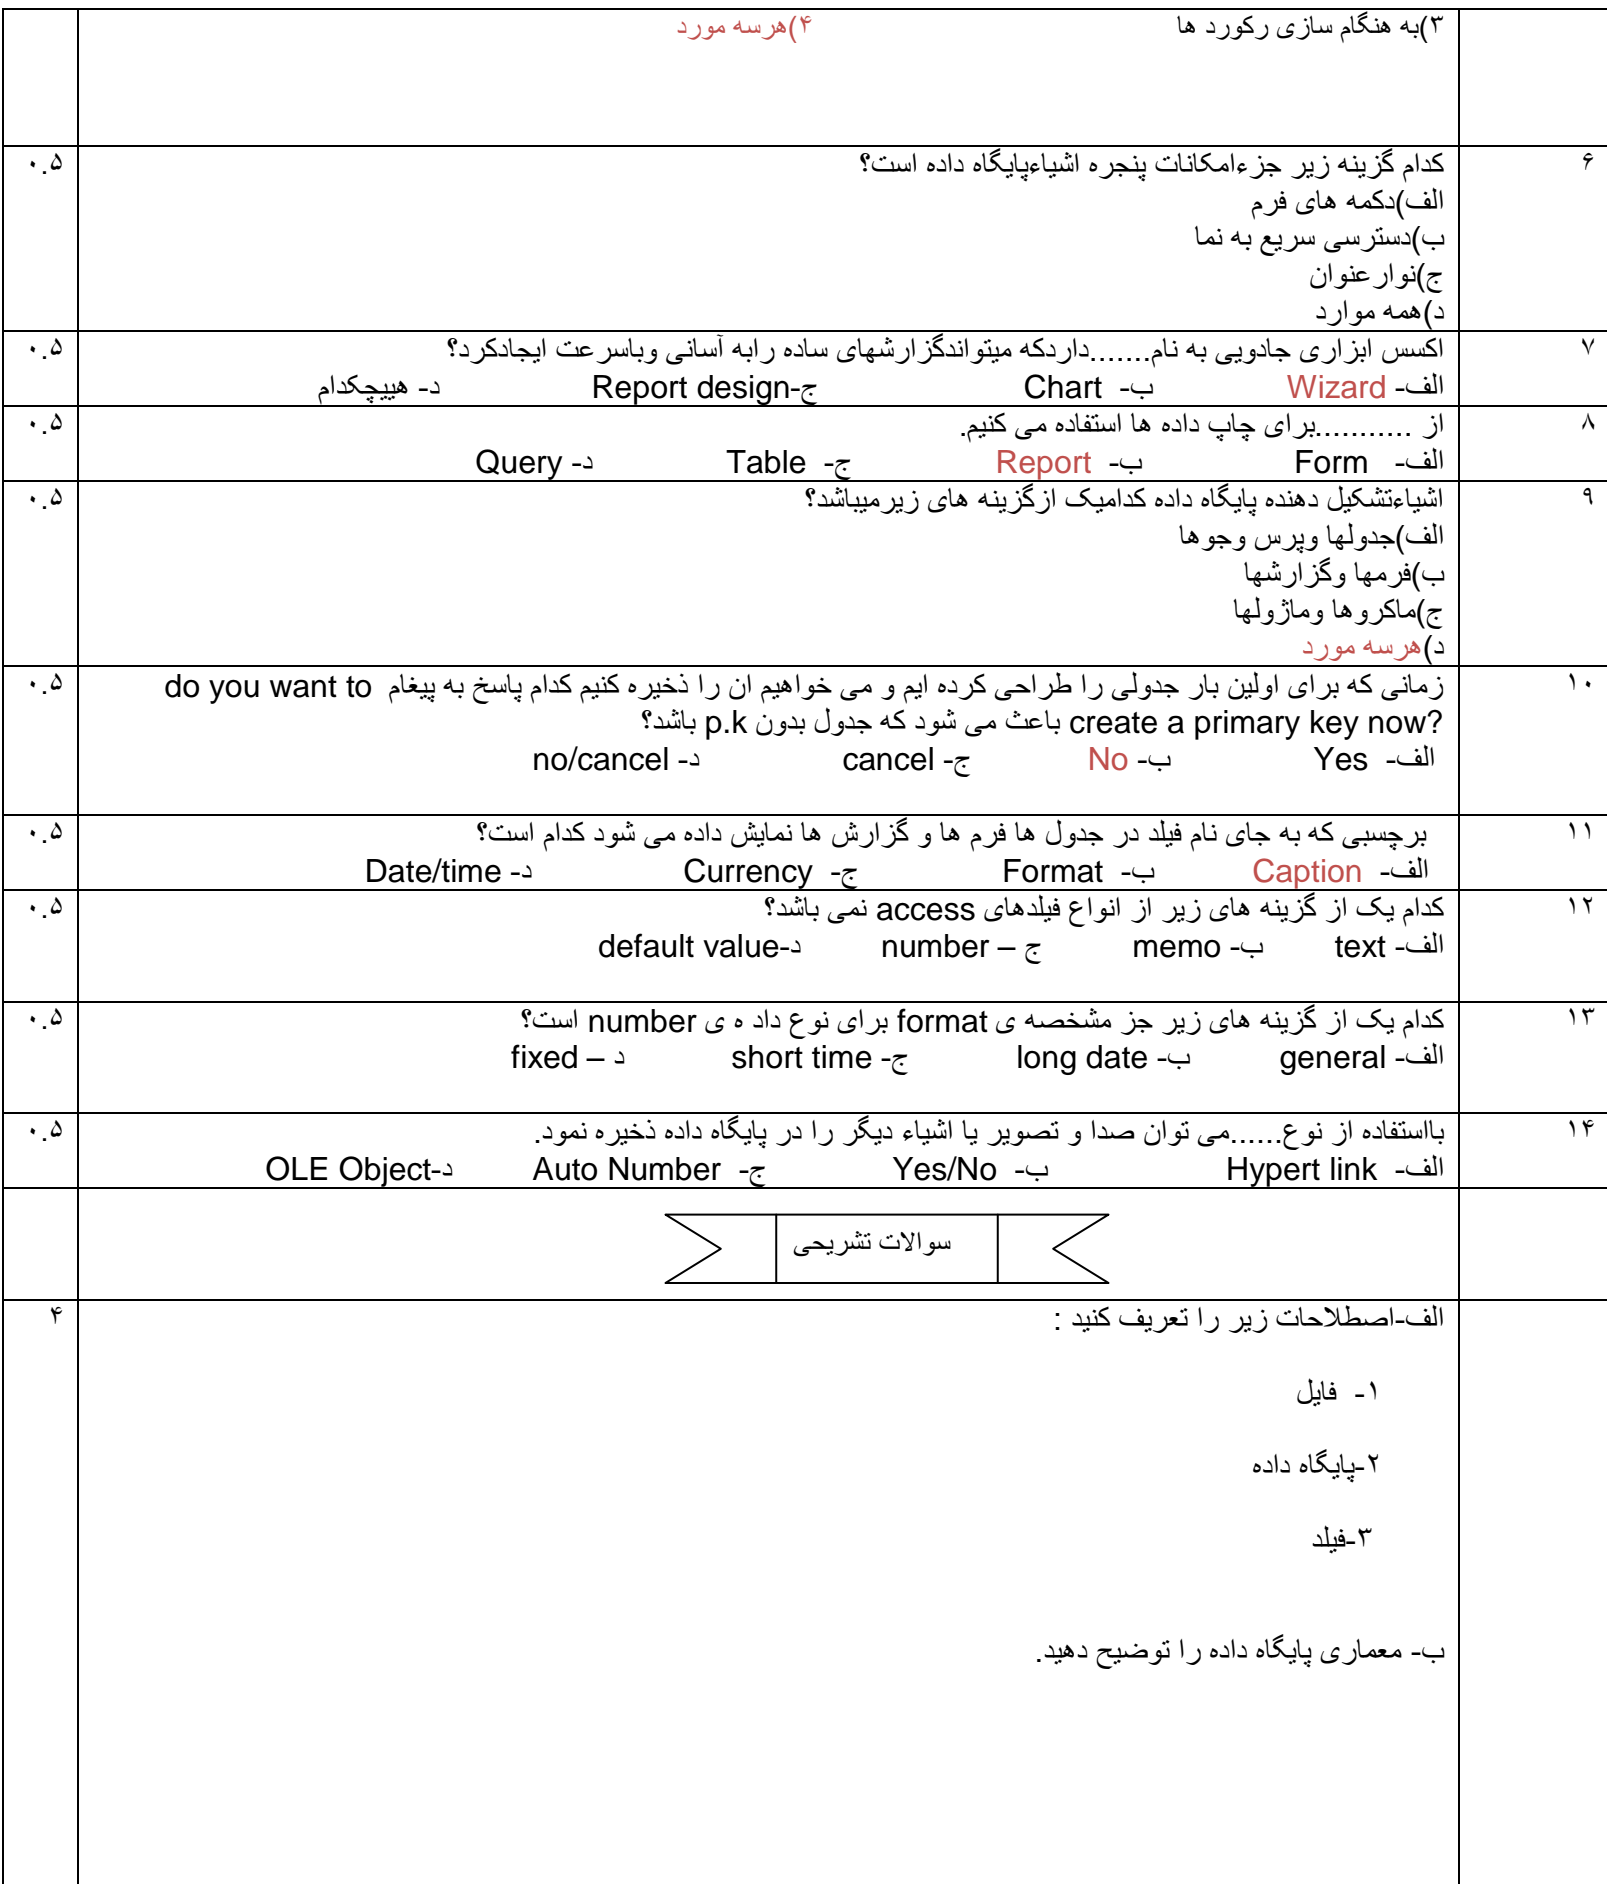 ۳)به هنگام سازی رکورد ها ۴)هرسه مورد
۶ کدام گزینه زیر جزءامکانات پنجره اشیاءپایگاه داده است؟ ۰.۵
الف)دکمه های فرم
ب)دسترسی سریع به نما
ج)نوارعنوان
د)همه موارد
۷ اکسس ابزاری جادویی به نام.......داردکه میتواندگزارشهای ساده رابه آسانی وباسرعت ایجادکرد؟ ۰.۵
الف- Wizard ب- Chart ج-Report design د- هییچکدام
۸ از ...........برای چاپ داده ها استفاده می کنیم. ۰.۵
الف- Form ب- Report ج- Table د- Query
۹ اشیاءتشکیل دهنده پایگاه داده کدامیک ازگزینه های زیرمیباشد؟ ۰.۵
الف)جدولها وپرس وجوها
ب)فرمها وگزارشها
ج)ماکروها وماژولها
د)هرسه مورد
۱۰ زمانی که برای اولین بار جدولی را طراحی کرده ایم و می خواهیم ان را ذخیره کنیم کدام پاسخ به پیغام do you want to ۰.۵
create a primary key now? باعث می شود که جدول بدون p.k باشد؟
الف- Yes ب- No ج- cancel د- no/cancel
۱۱ برچسبی که به جای نام فیلد در جدول ها فرم ها و گزارش ها نمایش داده می شود کدام است؟ ۰.۵
الف- Caption ب- Format ج- Currency د- Date/time
۱۲ کدام یک از گزینه های زیر از انواع فیلدهای access نمی باشد؟ ۰.۵
الف- text ب- memo ج – number د-default value
۱۳ کدام یک از گزینه های زیر جز مشخصه ی format برای نوع داد ه ی number است؟ ۰.۵
الف- general ب- long date ج- short time د – fixed
۱۴ بااستفاده از نوع......می توان صدا و تصویر یا اشیاء دیگر را در پایگاه داده ذخیره نمود. ۰.۵
الف- Hypert link ب- Yes/No ج- Auto Number د-OLE Object
سوالات تشریحی
الف-اصطلاحات زیر را تعریف کنید : ۴
۱- فایل
۲-پایگاه داده
۳-فیلد
ب- معماری پایگاه داده را توضیح دهید.